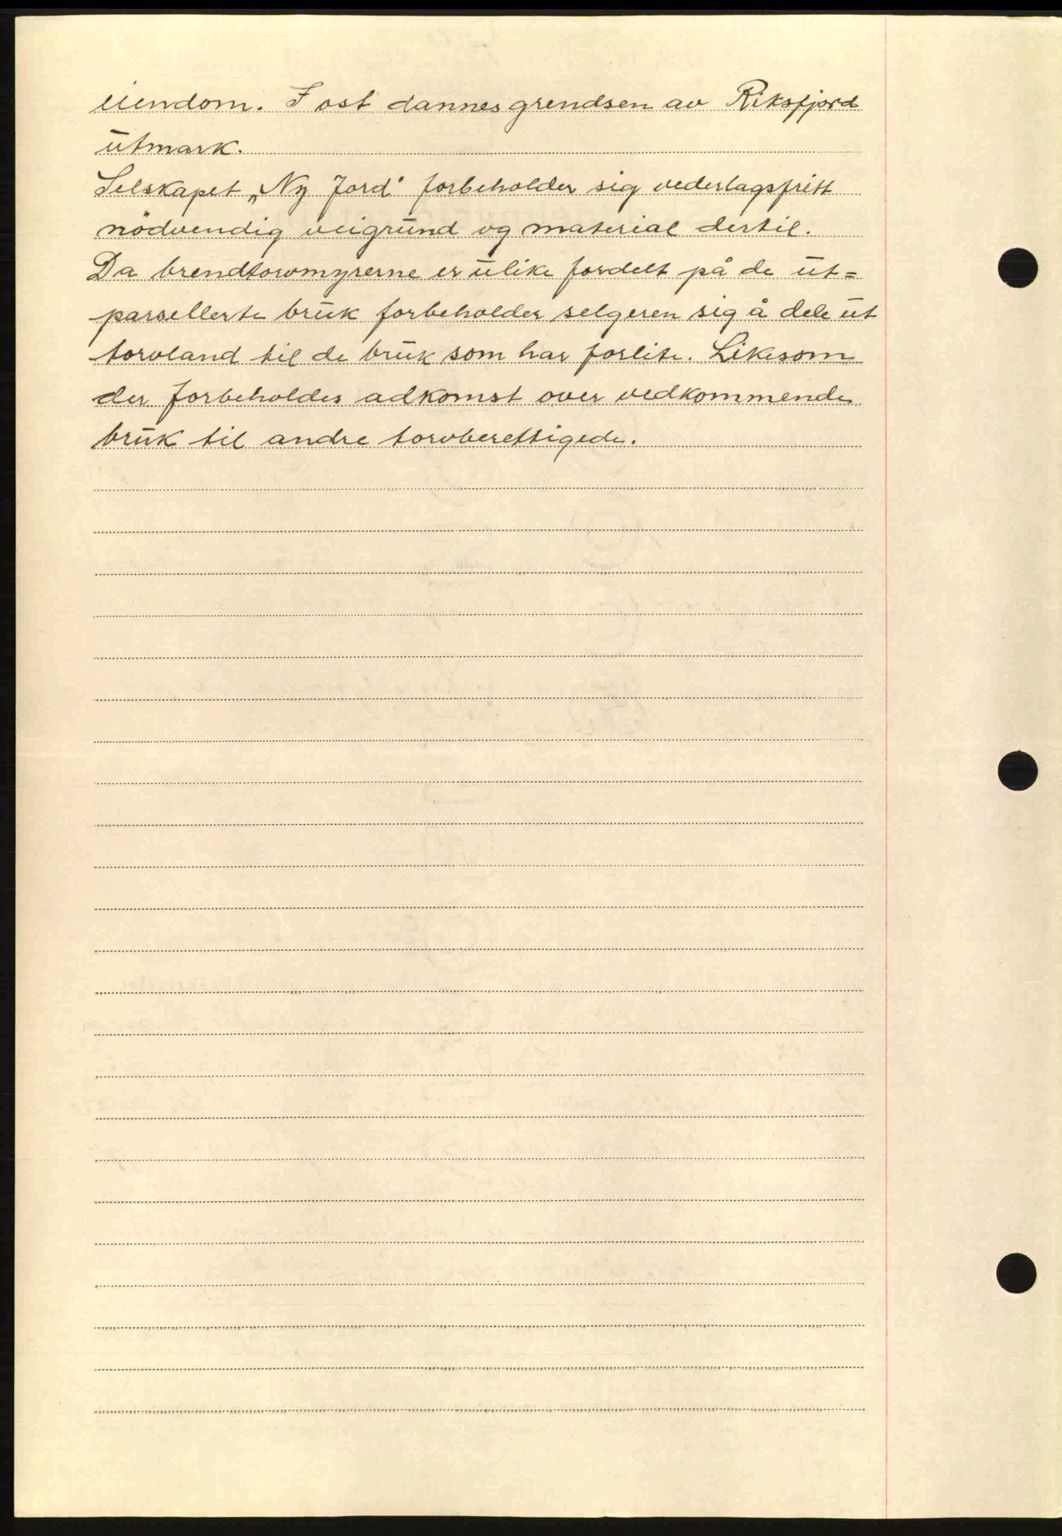 eiendom. I ost dannes grendsen av Riksfjord
utmark.
Selskapet „Ny Jord" forbeholder sig vederlagsfritt
nödvendig veigrund og material dertil.
Da brendtorvmyrerne er ulike fordelt på de ut=
parsellerte bruk forbeholder selgeren sig å dele ut
torvland til de bruk som har forlite. Likesom
der forbeholdes adkomst over vedkommende
bruk til andre torvberettigede.